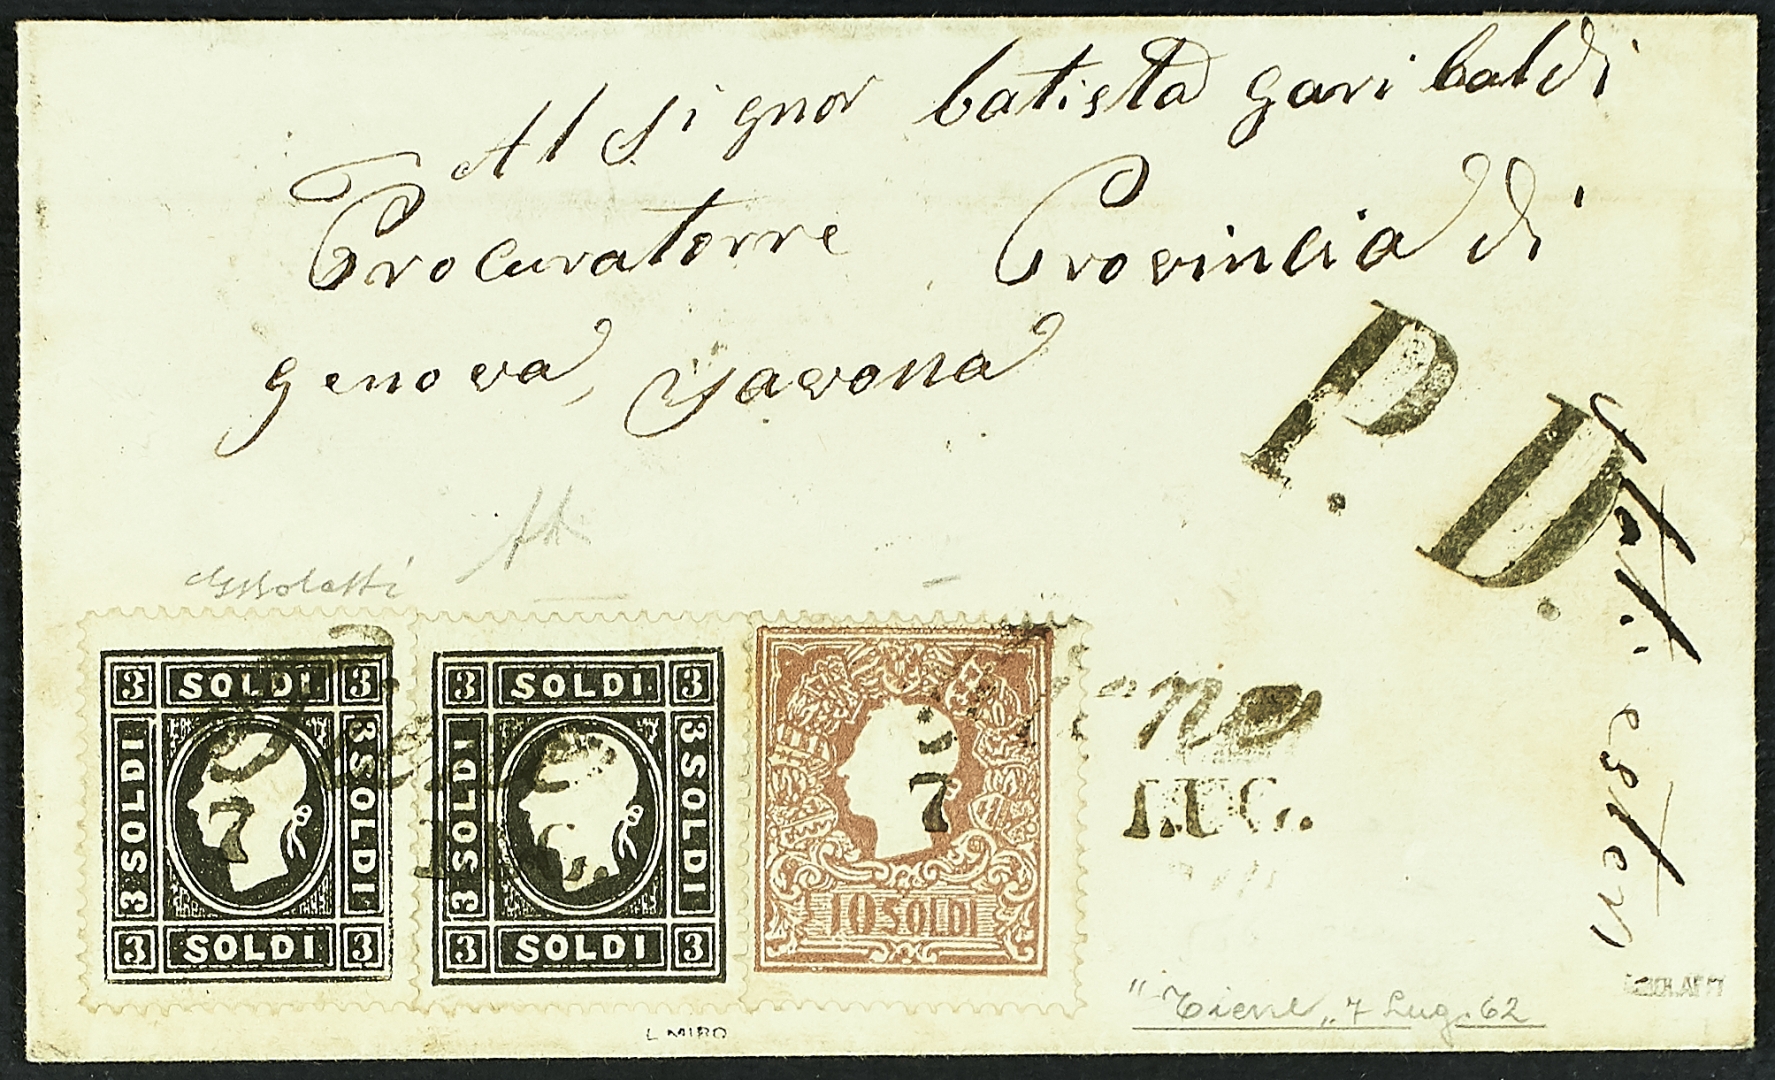 Al signor batista garibaldi
Procuratorre Provincia di
genova, Savona
P. D.
Stati esteri
3 SOLDI 3
3 SOLDI
3 SOLDI
3 SOLDI 3
3 SOLDI 3
3 SOLDI
3 SOLDI
3 SOLDI 3
10 SOLDI
7 LUG.
7 LUG.
"Tiene„ 7 Lug. 62
L MIRO